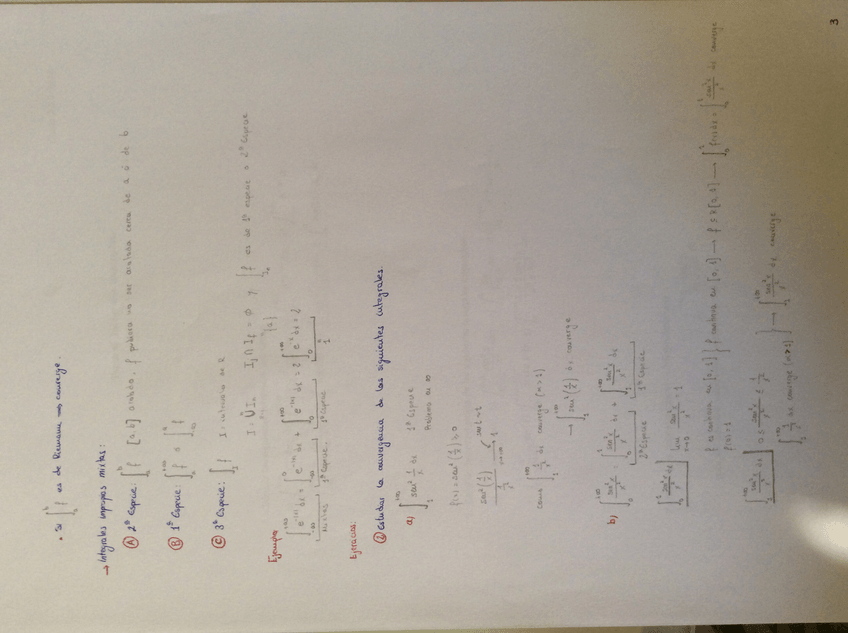 • Si ∫_a^b f es de Riemann ⟹ converge.
→ Integrales impropias mixtas:
Ⓐ 2ª Especie: ∫_a^b f [a,b] acotado, f pudiera no ser acotada cerca de a ó de b
Ⓑ 1ª Especie: ∫_a^{+∞} f o ∫_{-∞}^a f
Ⓒ 3ª Especie: ∫_I f I = intervalo de ℝ
I = ⋃ I_n I_j ∩ I_k = ∅ y ∫_{I_n} f es de 1ª especie o 2ª Especie
{a}
Ejemplo
∫_{-∞}^{+∞} e^{-|x|} dx = ∫_{-∞}^0 e^{-|x|} dx + ∫_0^{+∞} e^{-|x|} dx = 2 ∫_0^{+∞} e^{-x} dx = 2
Mixtas 1ª Especie 1ª Especie 1
Ejercicios:
① Estudiar la convergencia de las siguientes integrales.
a) ∫_1^{+∞} sen² 1/x dx 1ª Especie
Problema en ∞
f(x) = sen² (1/x) ≥ 0
sen² (1/x) / 1/x² → 1
x→+∞
Como ∫_1^{+∞} 1/x² dx converge (α>1)
→ ∫_1^{+∞} sen² (1/x) dx converge
b) ∫_0^{+∞} sen²x/x² = ∫_0^1 sen²x/x² dx + ∫_1^{+∞} sen²x/x² dx
2ª Especie 1ª Especie
∫_0^1 sen²x/x² dx lim_{x→0} sen²x/x² = 1
f es continua en (0,1] } f continua en [0,1] → f ∈ R[0,1] → ∫_0^1 f(x)dx = ∫_0^1 sen²x/x² dx converge
f(0)=1
∫_1^{+∞} sen²x/x² dx 0 ≤ sen²x/x² ≤ 1/x²
∫_1^{+∞} 1/x² dx converge (α>1) } → ∫_1^{+∞} sen²x/x² dx converge
3